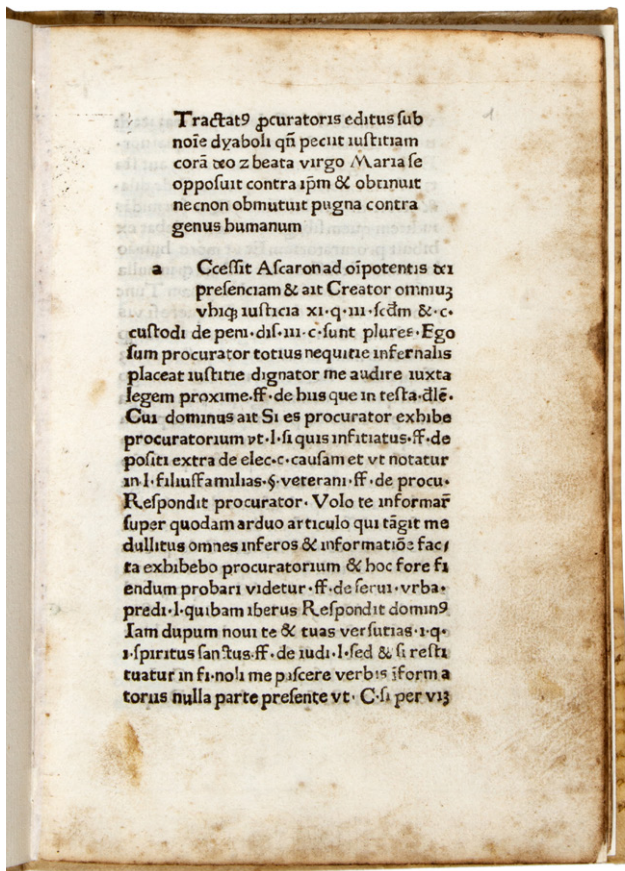 1
Tractatꝯ ꝓcuratoris editus sub
noīe dyaboli qn̄ peciit iustitiam
corā xp̄o ⁊ beata virgo Maria se
opposuit contra ip̄m & obtinuit
necnon obmutuit pugna contra
genus humanum
a Ccessit Ascaron ad oīpotentis xp̄i
presenciam & ait Creator omniuꝫ
vbiqꝫ iusticia xi·q·iii·scd̄m &·c·
custodi de peni·dis·iii·c·sunt plures·Ego
sum procurator totius nequitie infernalis
placeat iustitie dignator me audire iuxta
legem proxime·ff·de hus que in testa·dl̄e·
Cui dominus ait Si es procurator exhibe
procuratorium vt·l·si quis infitiatus·ff·de
positi extra de elec·c·causam et vt notatur
in·l·filiusfamilias·§·veterani·ff·de procu·
Respondit procurator·Volo te informar̄
super quodam arduo articulo qui tāgit me
dullitus omnes inferos & informatiōe fac/
ta exhibebo procuratorium & hoc fore fi
endum probari videtur·ff·de serui·vrba·
predi·l·quibam iberus Respondit dominꝯ
Iam dupum noui te & tuas versutias·i·q·
i·spiritus sanctus·ff·de iudi·l·sed & si resti
tuatur in fi·noli me pascere verbis īform a
torus nulla parte presente vt·C·si per viꝫ